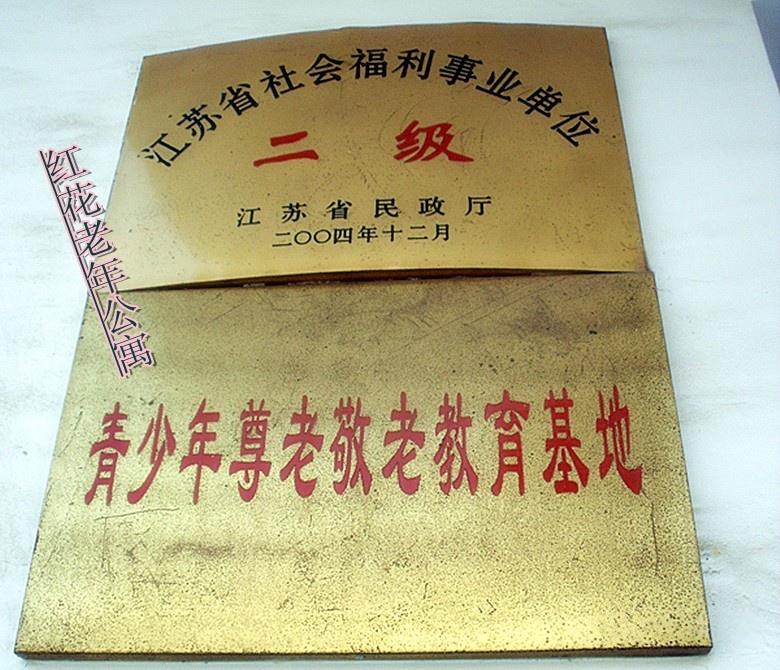 江苏省社会福利事业单位
二级
江苏省民政厅
二〇〇四年十二月
红花老年公寓
青少年尊老敬老教育基地